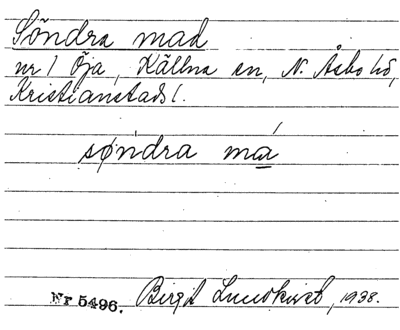 Söndra mad
nr 1 Öja, Källna sn, N. Åsbo hd,
Kristianstads l.
søndra má
Nr 5496. Birgit Lundkvist, 1938.